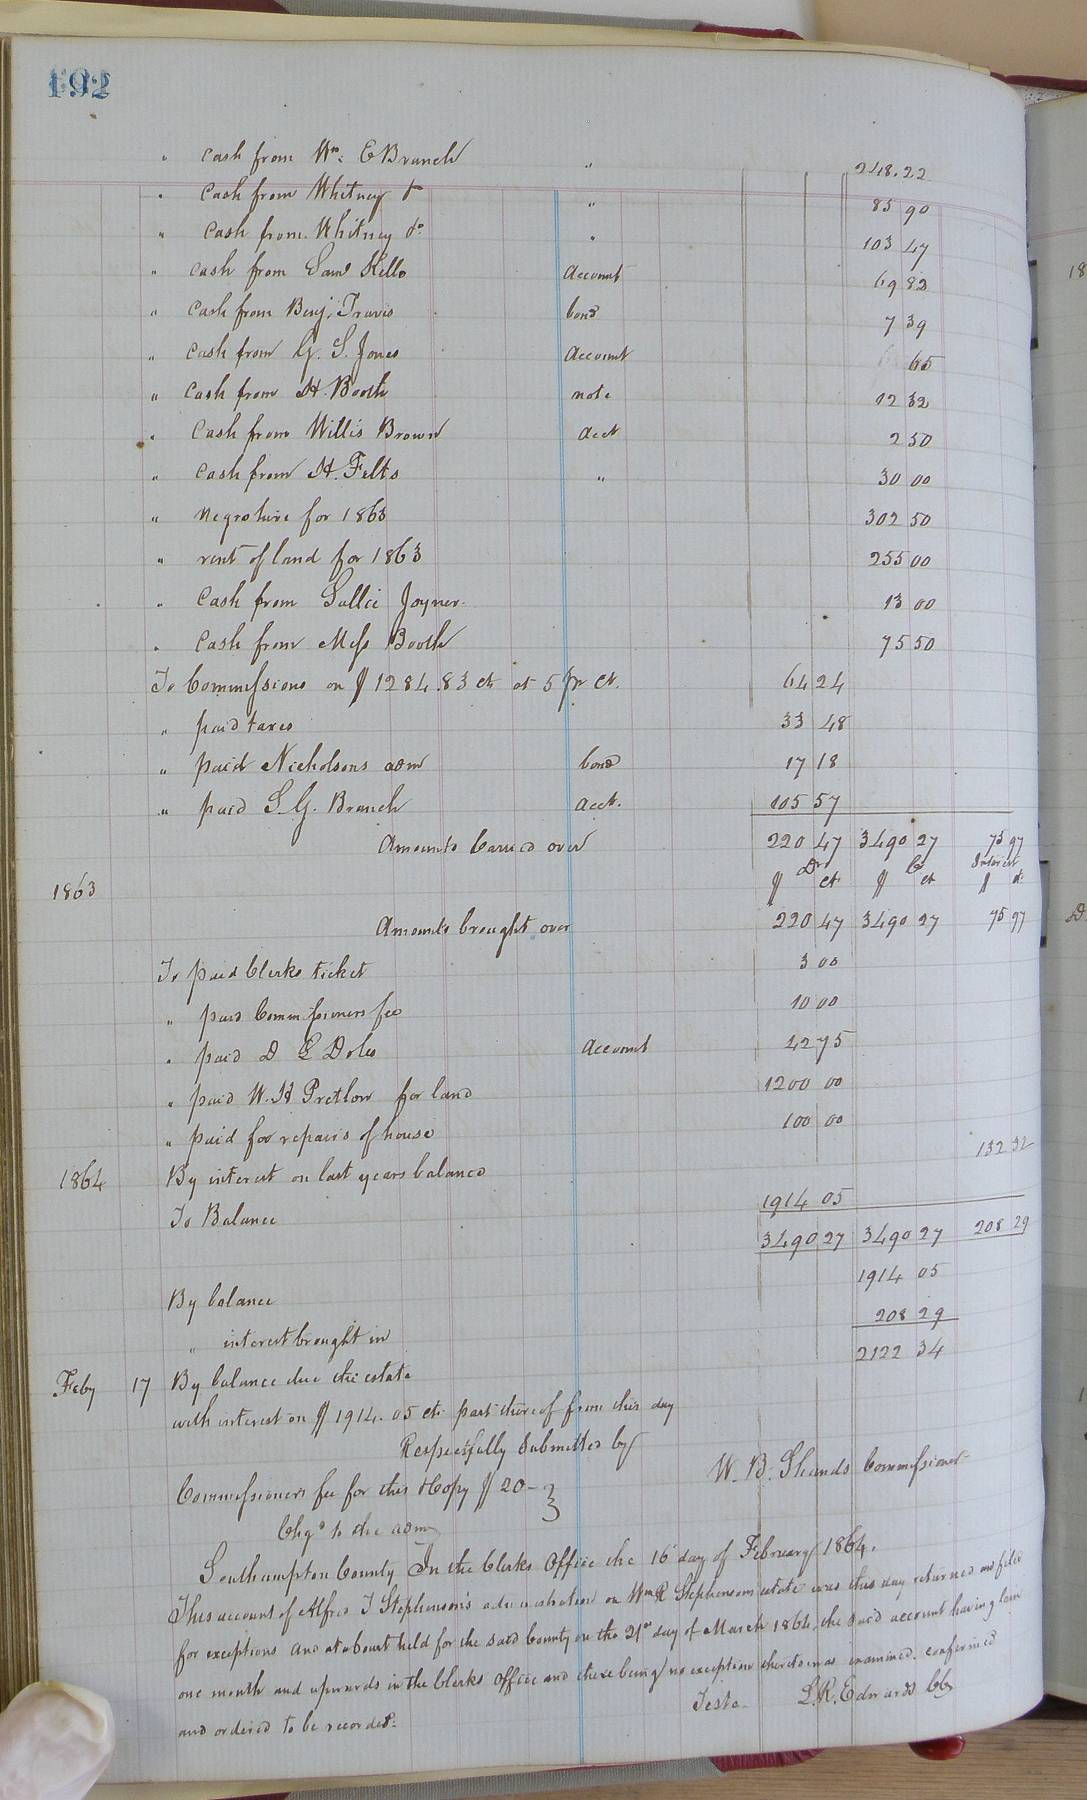 192
" Cash from Wm: E Branch " 248.22
" Cash from Whitney & " 85 90
" Cash from Whitney &c " 103 47
" Cash from Saml Kello Account 69 82
" Cash from Benj. Travis bond 7 39
" Cash from G. S. Jones Account 65
" Cash from H. Booth note 12 32
" Cash from Willis Brown acct 2 50
" Cash from H. Felts " 30 00
" Negro hire for 1863 302 50
" rent of land for 1863 255 00
" Cash from Sallie Joyner 13 00
" Cash from Booth 75 50
To Commissions on $1284.83 cts at 5 pr ct. 64 24
" paid taxes 33 48
" paid Nicholsons adm bond 17 18
" paid S. G. Branch acct. 105 57
Amounts Carried over 220 47 3490 27 75 97
1863 Dr Cr Interest
$ ct $ ct $ ct
Amounts brought over 220 47 3490 27 75 97
To paid Clerks ticket 3 00
" paid Commissioners fee 10 00
" paid D E Doles Account 42 75
" paid W. H Pretlow for land 1200 00
" paid for repairs of house 100 00
1864 By interest on last years balance 132 32
To Balance 1914 05
3490 27 3490 27 208 29
By balance 1914 05
" interest brought in 208 29
2122 34
Feby 17 By balance due the estate
with interest on $1914.05 cts part thereof from this day
Respectfully Submitted by
W. B. Shands Commissioner
Commissioners fee for this & Copy $20 -
Chgd to the adm
Southampton County In the Clerks Office the 16 day of February 1864.
This account of Alfred J Stephenson's administration on Wm R Stephensons estate was this day returned and filed
for exceptions and at a Court held for the said County on the 21st day of March 1864, the said account having lain
one month and upwards in the Clerks Office and there being no exception thereto was examined, confirmed
and ordered to be recorded.
Teste L. R. Edwards CC